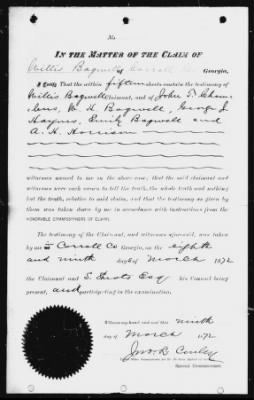 No.
IN THE MATTER OF THE CLAIM OF
Willis Bagwell of Carroll Co Georgia,
I Certify That the within fifteen sheets contain the testimony of
Willis Bagwell Claimant, and of John T. Cham-
bers, W. H. Bagwell, George J.
Haynes, Emily Bagwell and
A. H. Harrison
witnesses named to me in the above case; that the said claimant and
witnesses were each sworn to tell the truth, the whole truth and nothing
but the truth, relative to said claim, and that the testimony as given by
them was taken down by me in accordance with instructions from the
HONORABLE COMMISSIONERS OF CLAIMS.
The testimony of the Claimant, and witnesses aforesaid, was taken
by me in Carroll Co Georgia, on the eighth
and ninth days of March 1872
the Claimant and S. Esq his Counsel being
present, and participating in the examination.
Witness my hand and seal this ninth
day of March 1872
Jno. R. Conley
Special Commissioner.